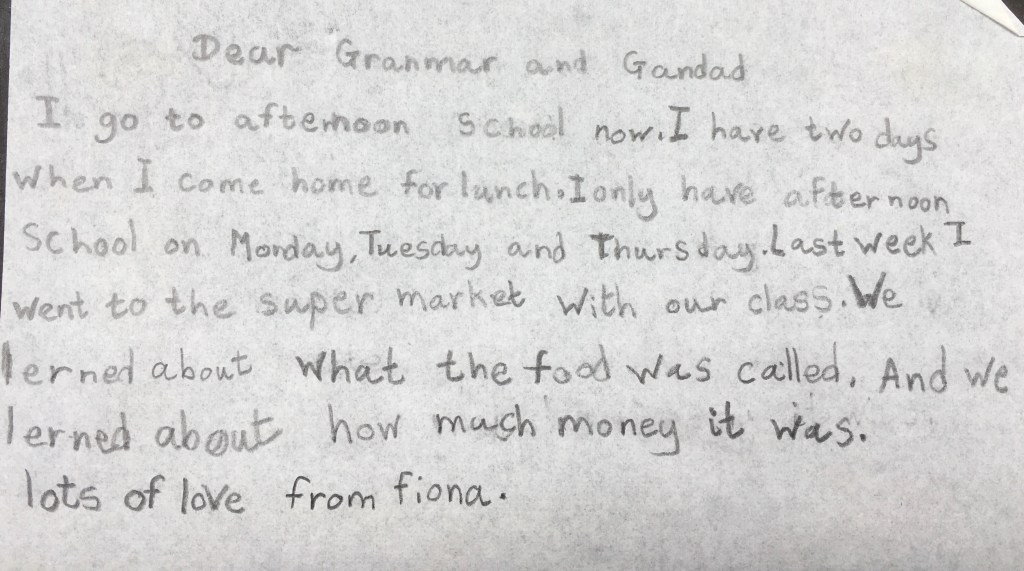 Dear Granmar and Gandad
I go to afternoon School now. I have two days
when I come home for lunch. I only have afternoon
School on Monday, Tuesday and Thursday. Last week I
went to the super market with our class. We
lerned about what the food was called. And we
lerned about how much money it was.
lots of love from fiona.